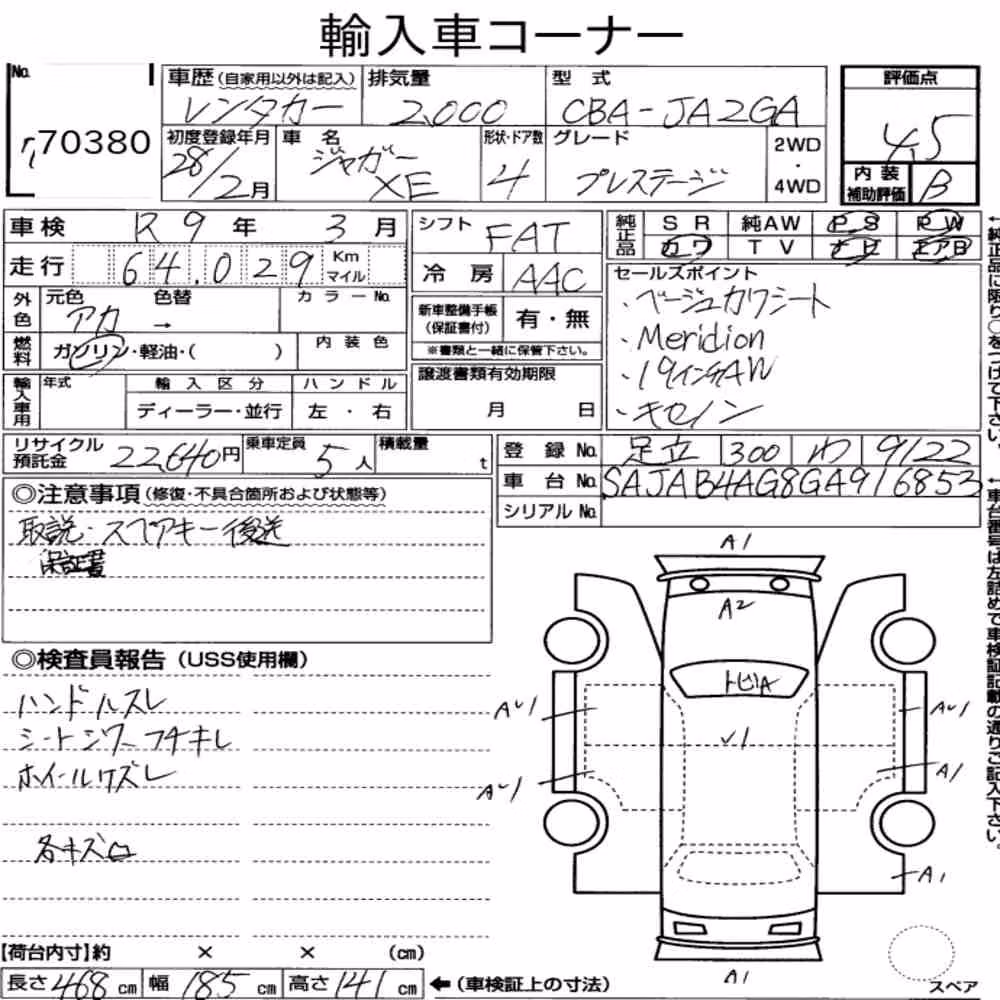 輸入車コーナー
No.
r,70380
車歴 (自家用以外は記入) レンタカー
排気量 2,000
型式 CBA-JA2GA
評価点 4.5
初度登録年月 28/2月
車名 ジャガー XE
形状・ドア数 4
グレード プレステージ
2WD・4WD
内装補助評価 B
車検 R9年 3月
シフト FAT
純正品 SR 純AW PS PW
カワ TV ナビ エアB
走行 64.029 Km マイル
冷房 AAC
外色 元色 アカ 色替 → カラーNo.
新車整備手帳(保証書付) 有・無
※書類と一緒に保管下さい。
燃料 ガソリン・軽油・( ) 内装色
セールスポイント
・ベージュカワシート
・Meridion
・19インチAW
・キセノン
輸入車用 年式 輸入区分 ハンドル
ディーラー・並行 左・右
譲渡書類有効期限
月 日
リサイクル預託金 22,640円
乗車定員 5人
積載量 t
登録No. 足立 300 わ 9122
車台No. SAJAB4AG8GA916853
シリアルNo.
◎注意事項(修復・不具合箇所および状態等)
取説・スペアキー後送
保証書
◎検査員報告(USS使用欄)
ハンドルスレ
シートシワ、フチキレ
ホイールキズレ
各キズ
A1
A2
トビA
A〜1
✓1
A〜1
A〜1
A1
A1
A1
スペア
【荷台内寸】約 × × (cm)
長さ468cm 幅185cm 高さ141cm ←(車検証上の寸法)
←純正品に限り〇をつけて下さい。
←車台番号は左詰めで車検証記載の通りご記入下さい。